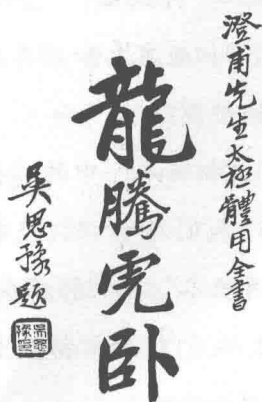 澄甫先生太極體用全書
龍騰虎卧
吳思豫題
吳思豫印